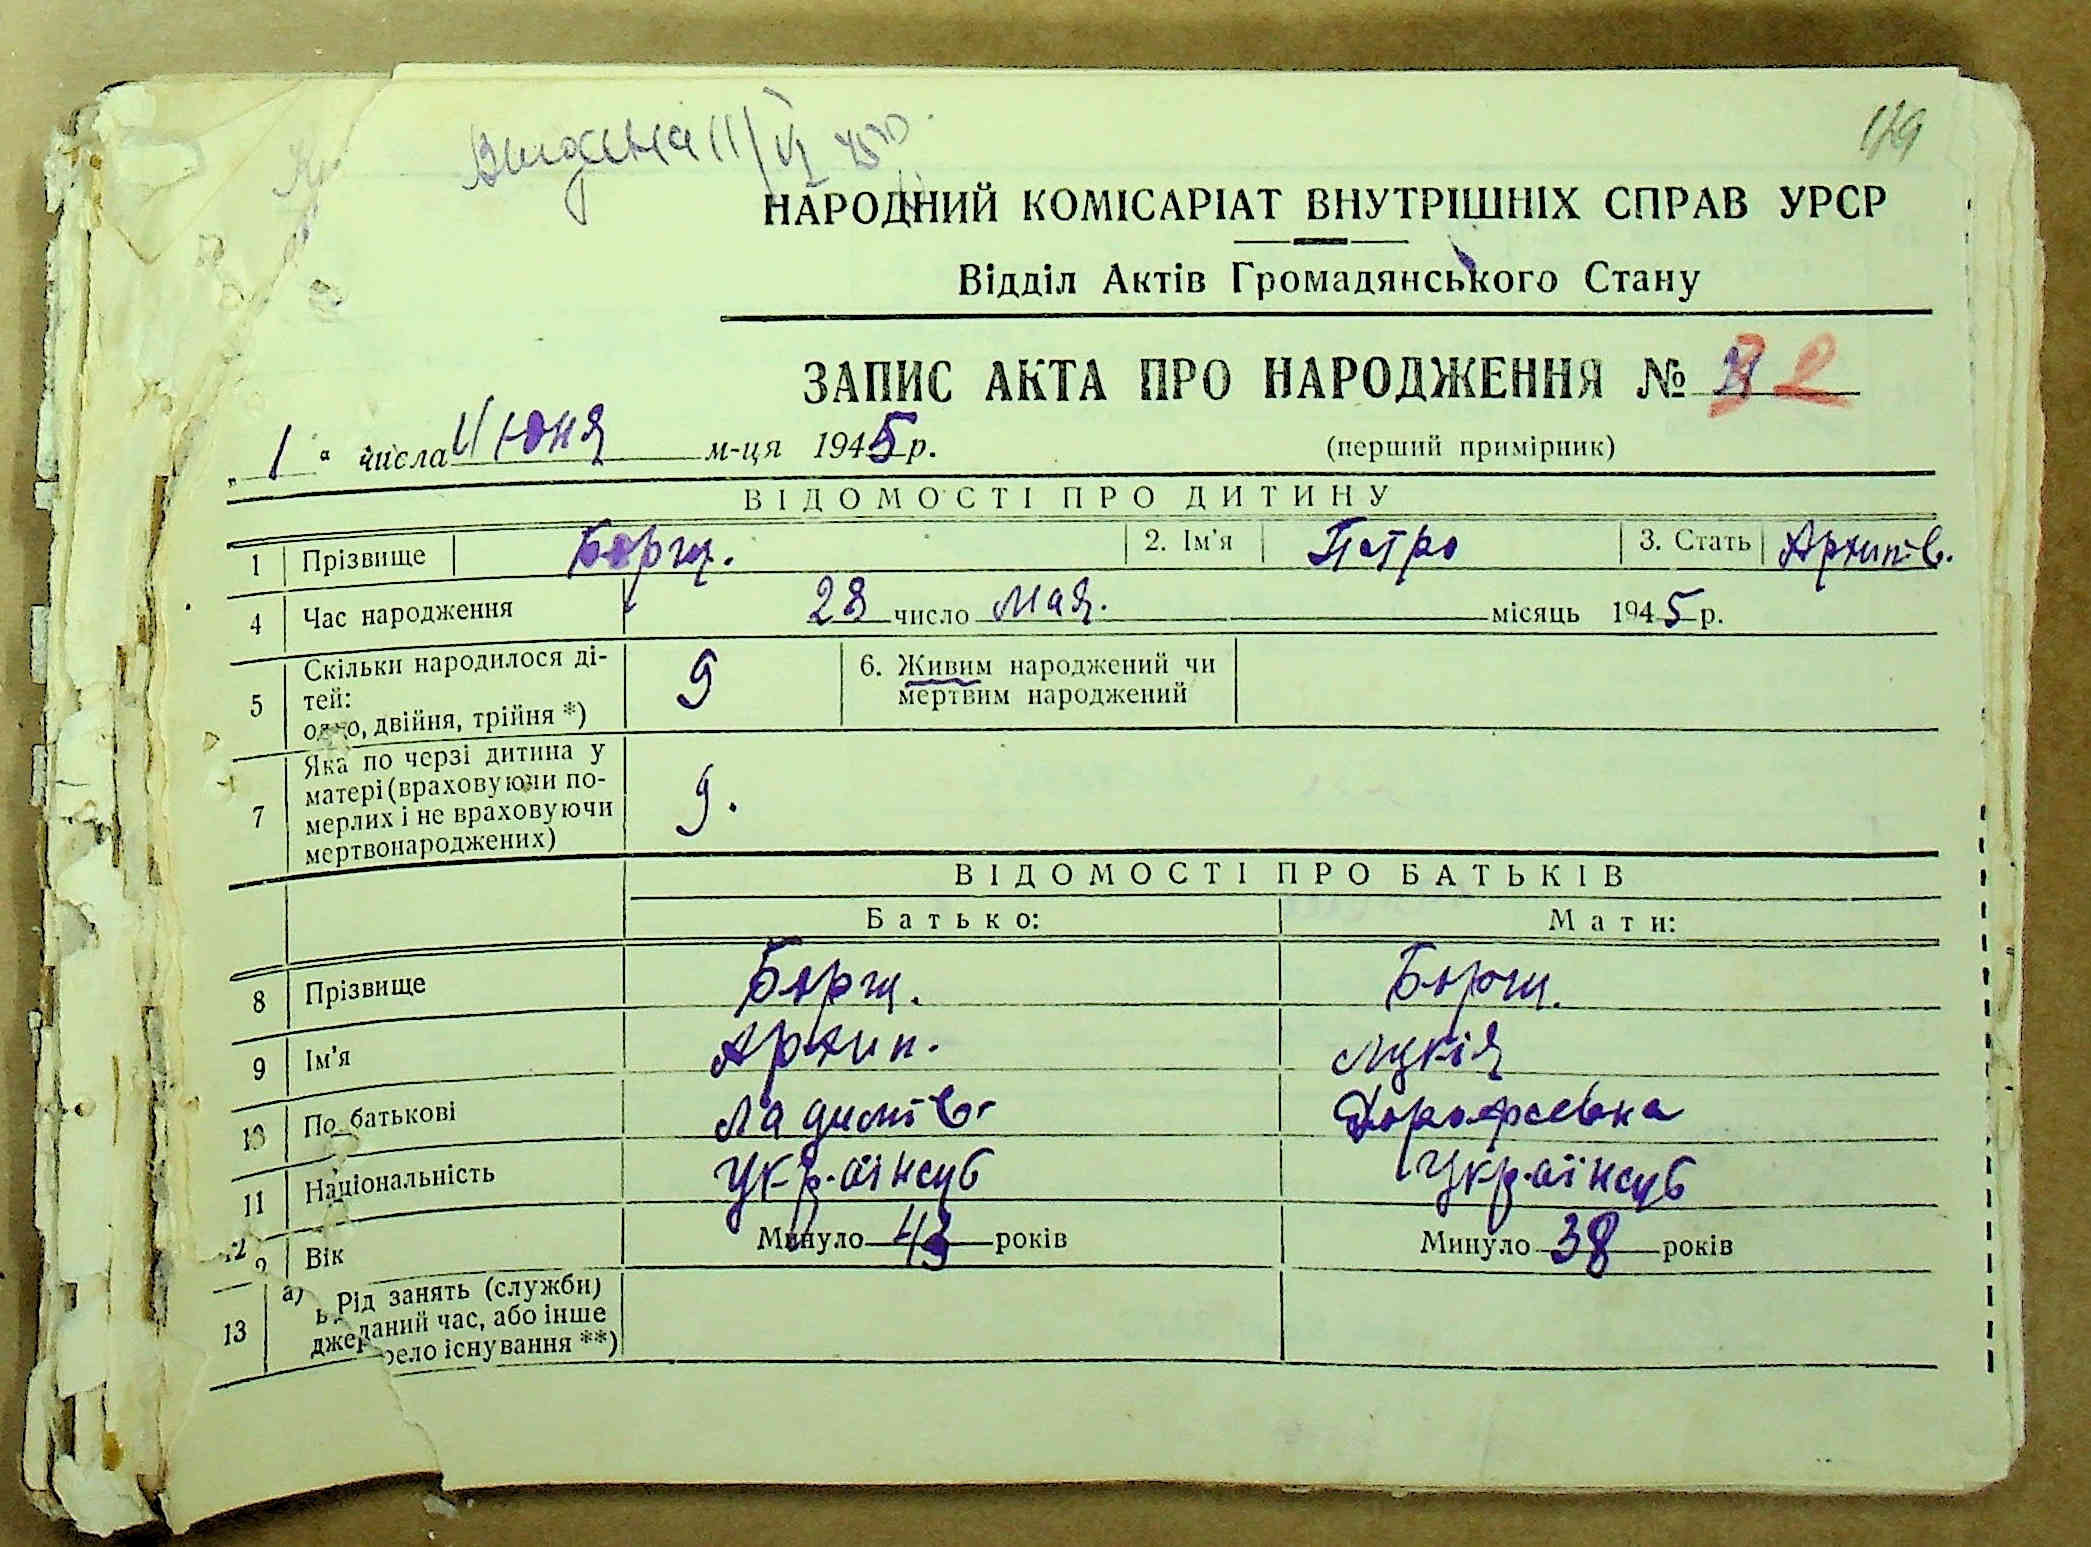 Видана 11/VI 45 р.
179
НАРОДНИЙ КОМІСАРІАТ ВНУТРІШНІХ СПРАВ УРСР
Відділ Актів Громадянського Стану
ЗАПИС АКТА ПРО НАРОДЖЕННЯ № 32
„1“ числа Июня м-ця 1945 р. (перший примірник)
ВІДОМОСТІ ПРО ДИТИНУ
1 Прізвище Борщ. 2. Ім'я Петро 3. Стать Архипів.
4 Час народження 28 число мая. місяць 1945 р.
5 Скільки народилося ді-
тей:
одно, двійня, трійня *) 9 6. Живим народжений чи
мертвим народжений
7 Яка по черзі дитина у
матері (враховуючи по-
мерлих і не враховуючи
мертвонароджених) 9.
ВІДОМОСТІ ПРО БАТЬКІВ
Батько: Мати:
8 Прізвище Борщ. Борщ.
9 Ім'я Архип. Лукія
10 По батькові Дорофеевна
11 Національність Українець Українець
12 Вік Минуло 43 років Минуло 38 років
13 а) Рід занять (служби)
даний час, або інше
джерело існування **)